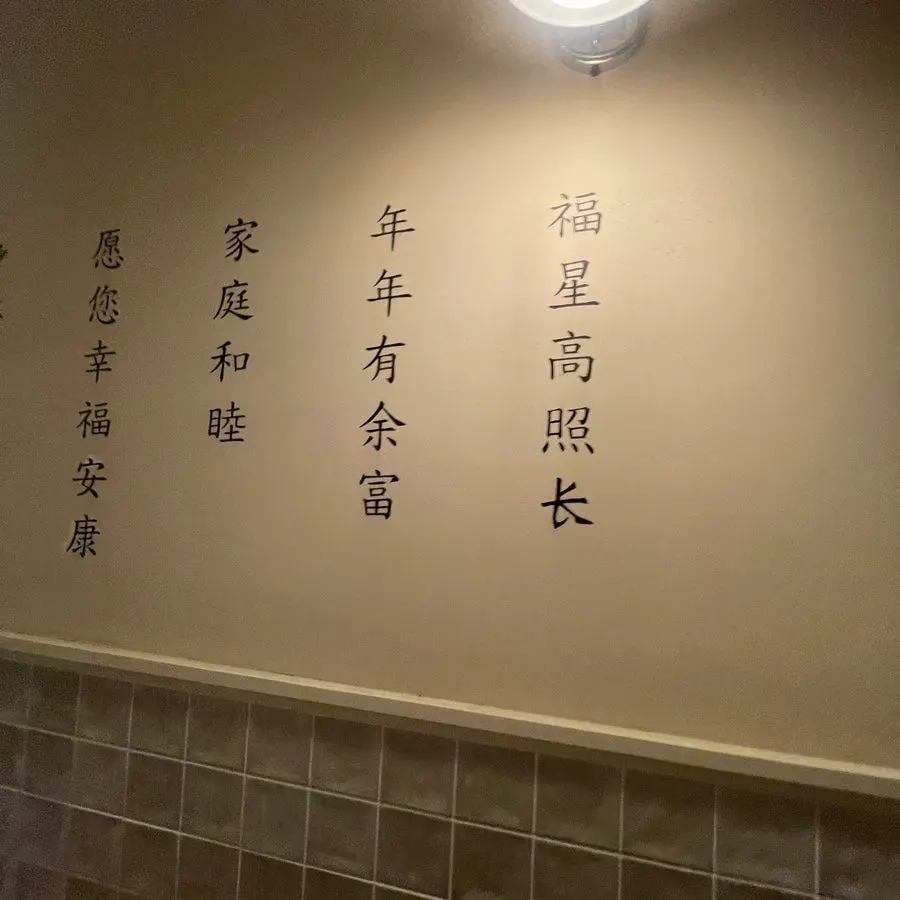 福星高照长
年年有余富
家庭和睦
愿您幸福安康